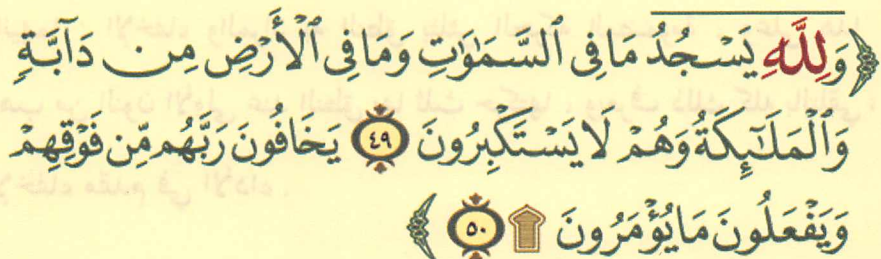 ﴿ وَلِلَّهِ يَسْجُدُ مَا فِي ٱلسَّمَٰوَٰتِ وَمَا فِي ٱلْأَرْضِ مِن دَآبَّةٍ
وَٱلْمَلَٰٓئِكَةُ وَهُمْ لَا يَسْتَكْبِرُونَ ٤٩ يَخَافُونَ رَبَّهُم مِّن فَوْقِهِمْ
وَيَفْعَلُونَ مَا يُؤْمَرُونَ ۩ ٥٠ ﴾